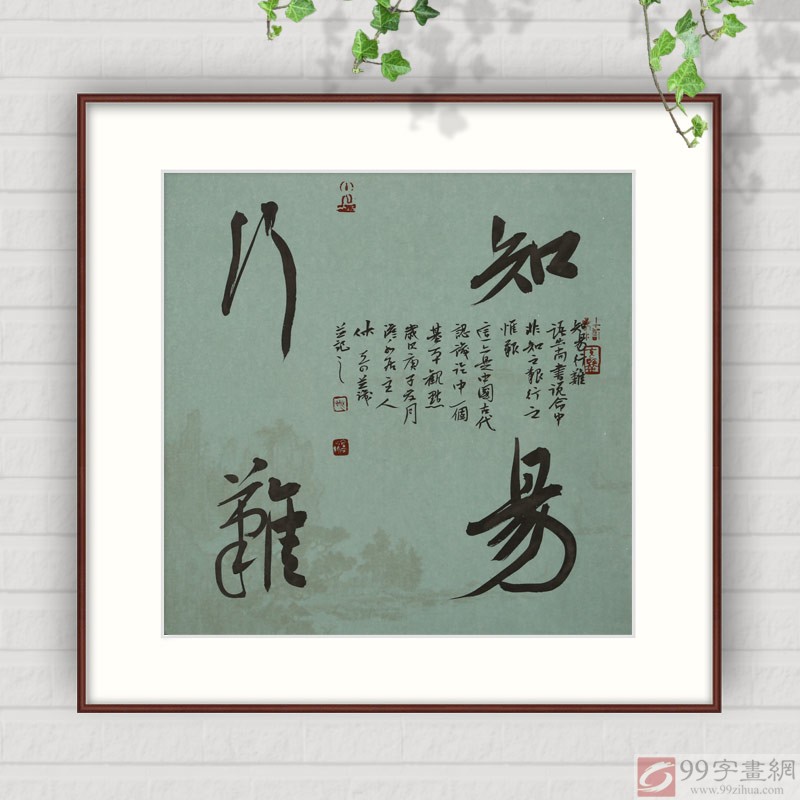 知易
行難
知易行難
語出尚書說命中
非知之艱行之
惟艱
這是中國古代
認識論中一個
基本觀點
歲次庚子月
主人
並記之
99字畫網
www.99zihua.com